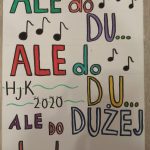 ALE do
DU...
ALE do
HJK
2020
DU...
ALE DO DUŻEJ